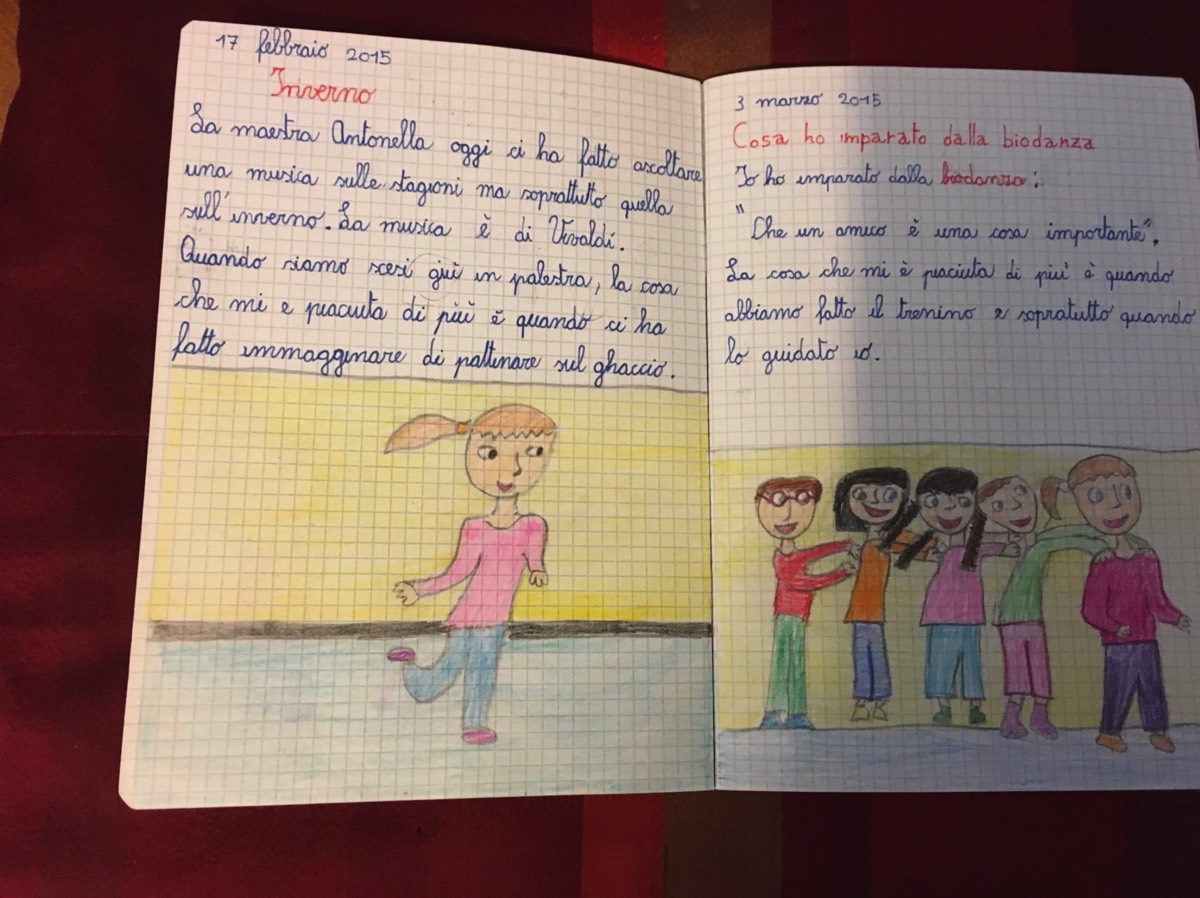 17 febbraio 2015
Inverno
La maestra Antonella oggi ci ha fatto ascoltare
una musica sulle stagioni ma soprattutto quella
sull'inverno. La musica è di Vivaldi.
Quando siamo scesi giù in palestra, la cosa
che mi e piaciuta di più è quando ci ha
fatto immagginare di pattinare sul ghiaccio.
3 marzo 2015
Cosa ho imparato dalla biodanza
Io ho imparato dalla biodanza:
"Che un amico è una cosa importante".
La cosa che mi è piaciuta di più è quando
abbiamo fatto il trenino e sopratutto quando
lo guidato io.